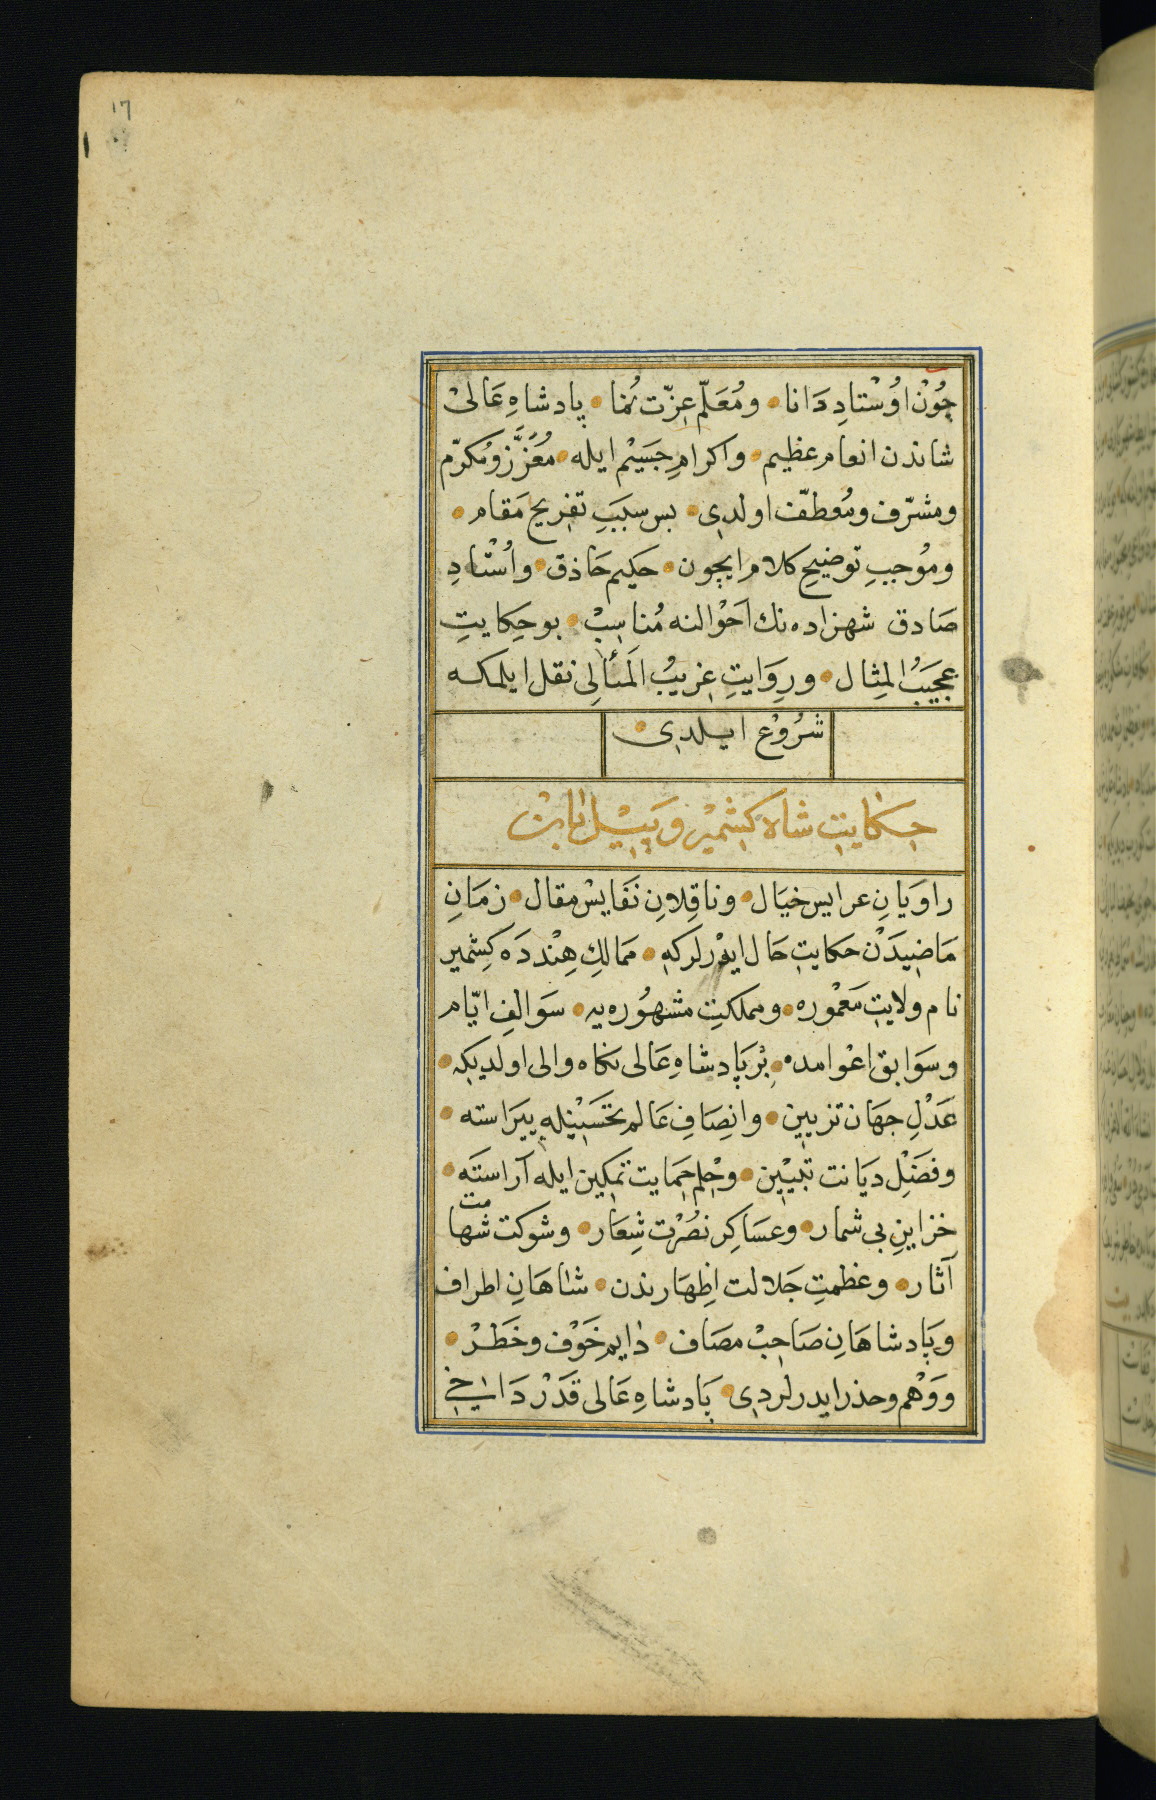 ١٦
چُوْن اوُسْتادِ دَانا ومُعَلّمِ عِزّت نُمٰا پادشاهِ عَالیْ
شاندن انعام عظیم واکرامِ جَسَیْم ایله مُعَزَّز ومُکرّم
ومشرّف ومُعطّف اولدی بس سبَبِ تفریح مَقام
ومُوجبِ توضیحِ کلام ایچون حَکیم حَاذق واُسْتَادِ
صَادق شهزاده نك اَحْوالنه مُناسِبْ بو حِکایتِ
عجیَبُ المِثال ورِوَایتِ غریبُ المَئالی نقل ایلمکه
شرُوْع ایلدی
حکایتِ شاه کشمیْر وپیْل
راویَانِ عرایس خیَال وناقِلانِ نَفایسْ مقال زمَانِ
مَاضیدَنْ حکایتِ حَال ایدرلرکه ممالكِ هِنْددَه کِشمیر
نام ولایتِ مَعْموره ومملکتِ مشهُوره یه سَوالفِ ایّام
وسَوابق اعْوامده بِرْ پادشاهِ عَالی نکاه والی اولدیکه
عَدْلِ جهَان تزیین وانِصَافِ عَالم تحَسَیْنِله پیرَاسته
وفضَلِ دیَانت تبْییْن وحِلمِ حِمَایت تمکین ایله آراستَه
خزاینِ بی شمار وعسَاکرِ نصُرْت شِعَار وشوکت شهامت
آثار وعظمتِ جَلالت اظِهارندن شاهَانِ اطراف
وپادشاهَانِ صَاحِبْ مصَاف دَایم خَوْف وخَطَرْ
ووَهْم وحذر ایدرلردی پَادشاهِ عَالی قَدَرْ دَاخی